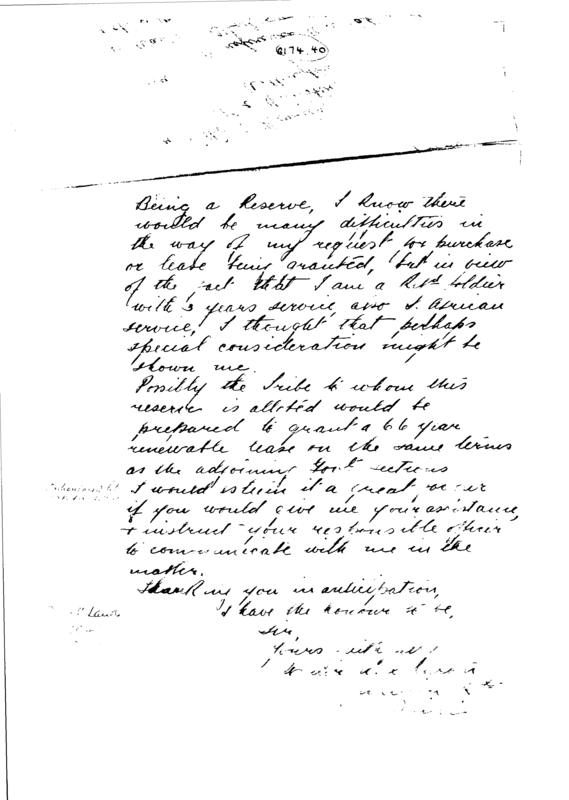 6174.40
Being a Reserve, I know there
would be many difficulties in
the way of my request to purchase
or lease being granted, but in view
of the fact that I am a Rtd Soldier
with 3 years service, also S. African
service, I thought that perhaps
special consideration might be
shown me.
Possibly the Tribe to whom this
reserve is alloted would be
prepared to grant a 66 year
renewable lease on the same terms
as the adjoining Govt sections
I would esteem it a great
if you would give me your assistance,
+ instruct your responsible officer
to communicate with me in the
matter.
Thanking you in anticipation,
I have the honour to be,
Sir,
Yours